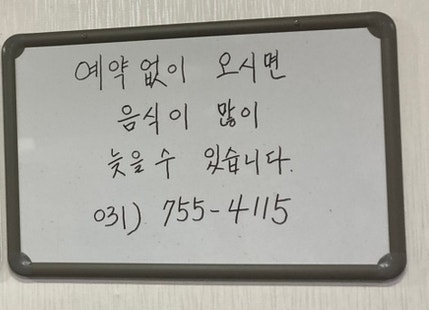 예약 없이 오시면
음식이 많이
늦을 수 있습니다.
031) 755-4115